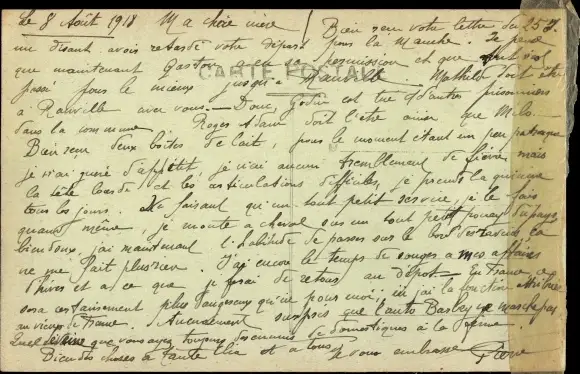 Le 8 Août 1918 Ma chère mère Bien reçu votre lettre du 25 J.
me disant avoir retardé votre départ pour la Manche. Je pense
que maintenant Gaston a eu sa permission et que tout s'est
passé pour le mieux jusqu'à Granville. Mathilde doit être
CARTE POSTALE
à Ranville avec vous. Donc, Godin est tué d'autres prisonniers
dans la commune. Roger Adam doit l'être ainsi que Milo
Bien reçu deux boîtes de lait, pour le moment étant un peu patraque
je n'ai guère d'appétit, je n'ai aucun tremblement de fièvre, mais
la tête lourde et les articulations difficiles, je prends la quinine
tous les jours. Ne faisant qu'un tout petit service, je le fais
quand même, je monte à cheval sur un tout petit poney du pays
bien doux, j'ai maintenant l'habitude de passer sur le bord des ravins ça
ne me fait plus rien. J'ai encore le temps de songer à mes affaires
d'hiver et à ce que je serai de retour au dépôt. En France, ce
sera certainement plus dangereux qu'ici pour moi, ici j'ai la fonction
au vieux de France. Aucunement surpris que l'auto ne marche pas
Quel que vous ayez toujours des ennuis de domestiques à la ferme
Bien des choses à tante Elia et à tous Je vous embrasse Pierre